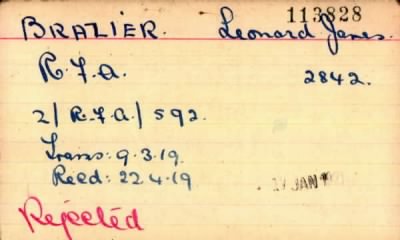 113828
BRAZIER. Leonard James.
R.F.A. 2842.
2/ R.F.A/ 592.
Trans: 9.3.19.
Recd: 22.4.19
17 JAN
Rejected